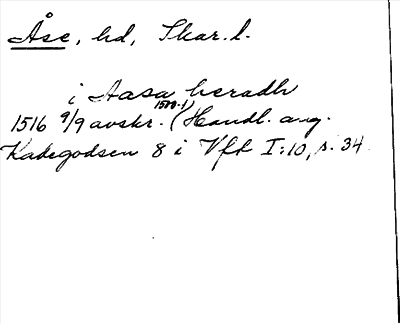 Åse, hd, Skar. l.
i Aasa heradh
1516 9/9 avskr. (Handl. ang.
1500-t)
Kakegodsen 8 i Vft I:10, s. 34.